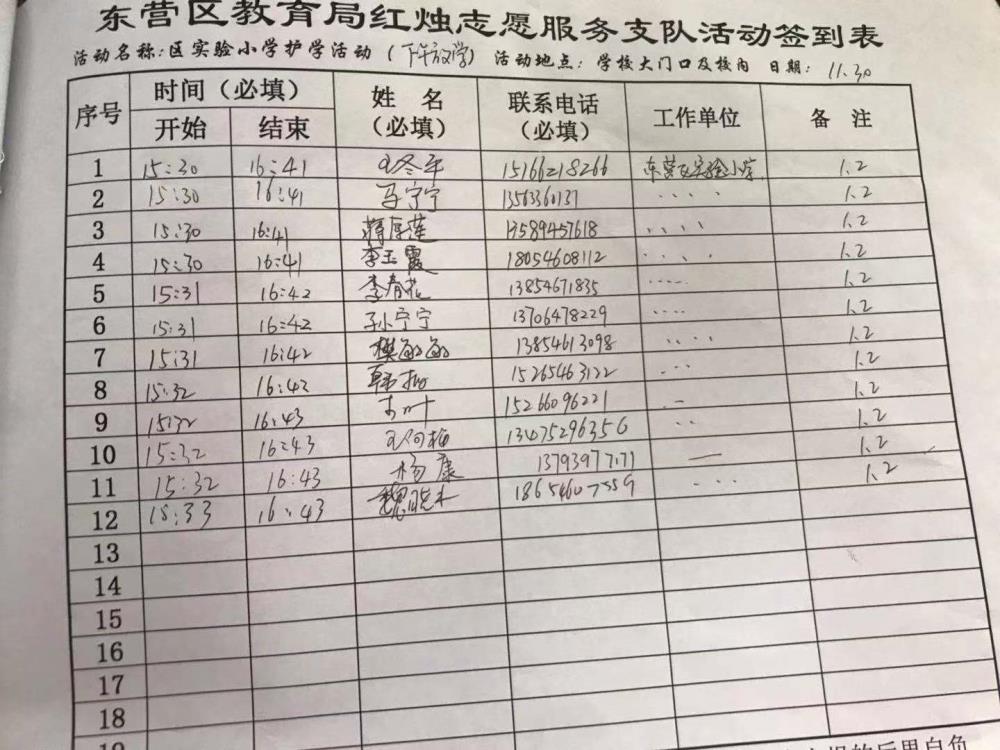 东营区教育局红烛志愿服务支队活动签到表
活动名称:区实验小学护学活动（下午放学） 活动地点：学校大门口及校内 日期：11.30
序号 时间（必填） 姓名（必填） 联系电话（必填） 工作单位 备注
开始 结束
1 15:30 16:41 王冬年 15166218266 东营区实验小学 1.2
2 15:30 16:41 马宁宁 13563360131 .... 1.2
3 15:30 16:41 蒋厚莲 13589457618 .... 1.2
4 15:30 16:41 李玉霞 18054608112 .... 1.2
5 15:31 16:42 李春花 13854671835 .... 1.2
6 15:31 16:42 孙宁宁 13706478229 .... 1.2
7 15:31 16:42 13854613098 .... 1.2
8 15:32 16:42 15265463122 ... 1.2
9 15:32 16:43 15266096221 1.2
10 15:32 16:43 13475296356 .. 1.2
11 15:32 16:43 杨康 13793977171 1.2
12 15:33 16:43 魏晓 18654607559 ... 1.2
13
14
15
16
17
18